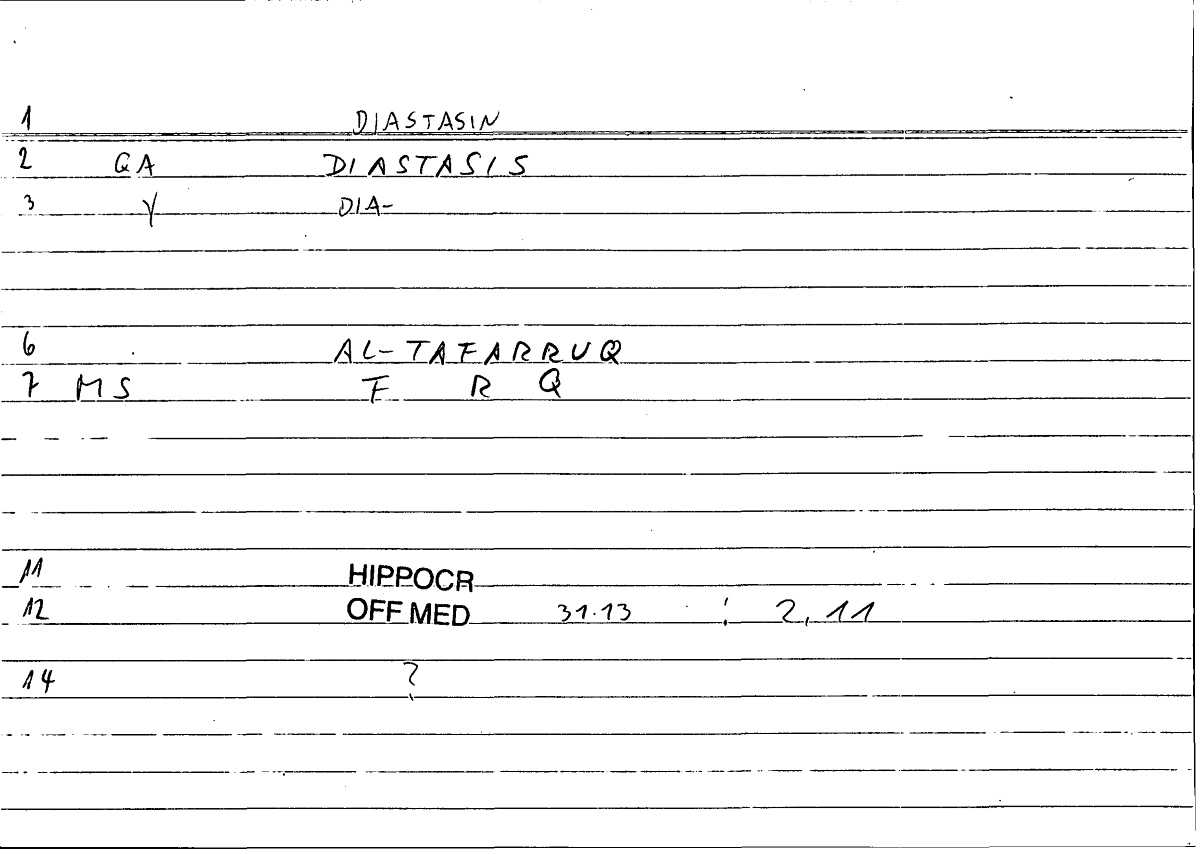 1 DIASTASIN
2 GA DIASTASIS
3 Y DIA-
6 AL-TAFARRUQ
7 MS F R Q
11 HIPPOCR
12 OFF MED 31.13 : 2,11
14 ?